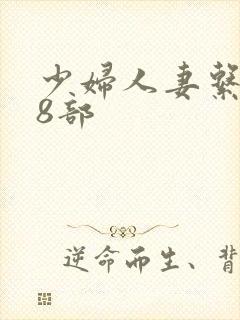 少婦人妻繫
8部
逆命而生、背